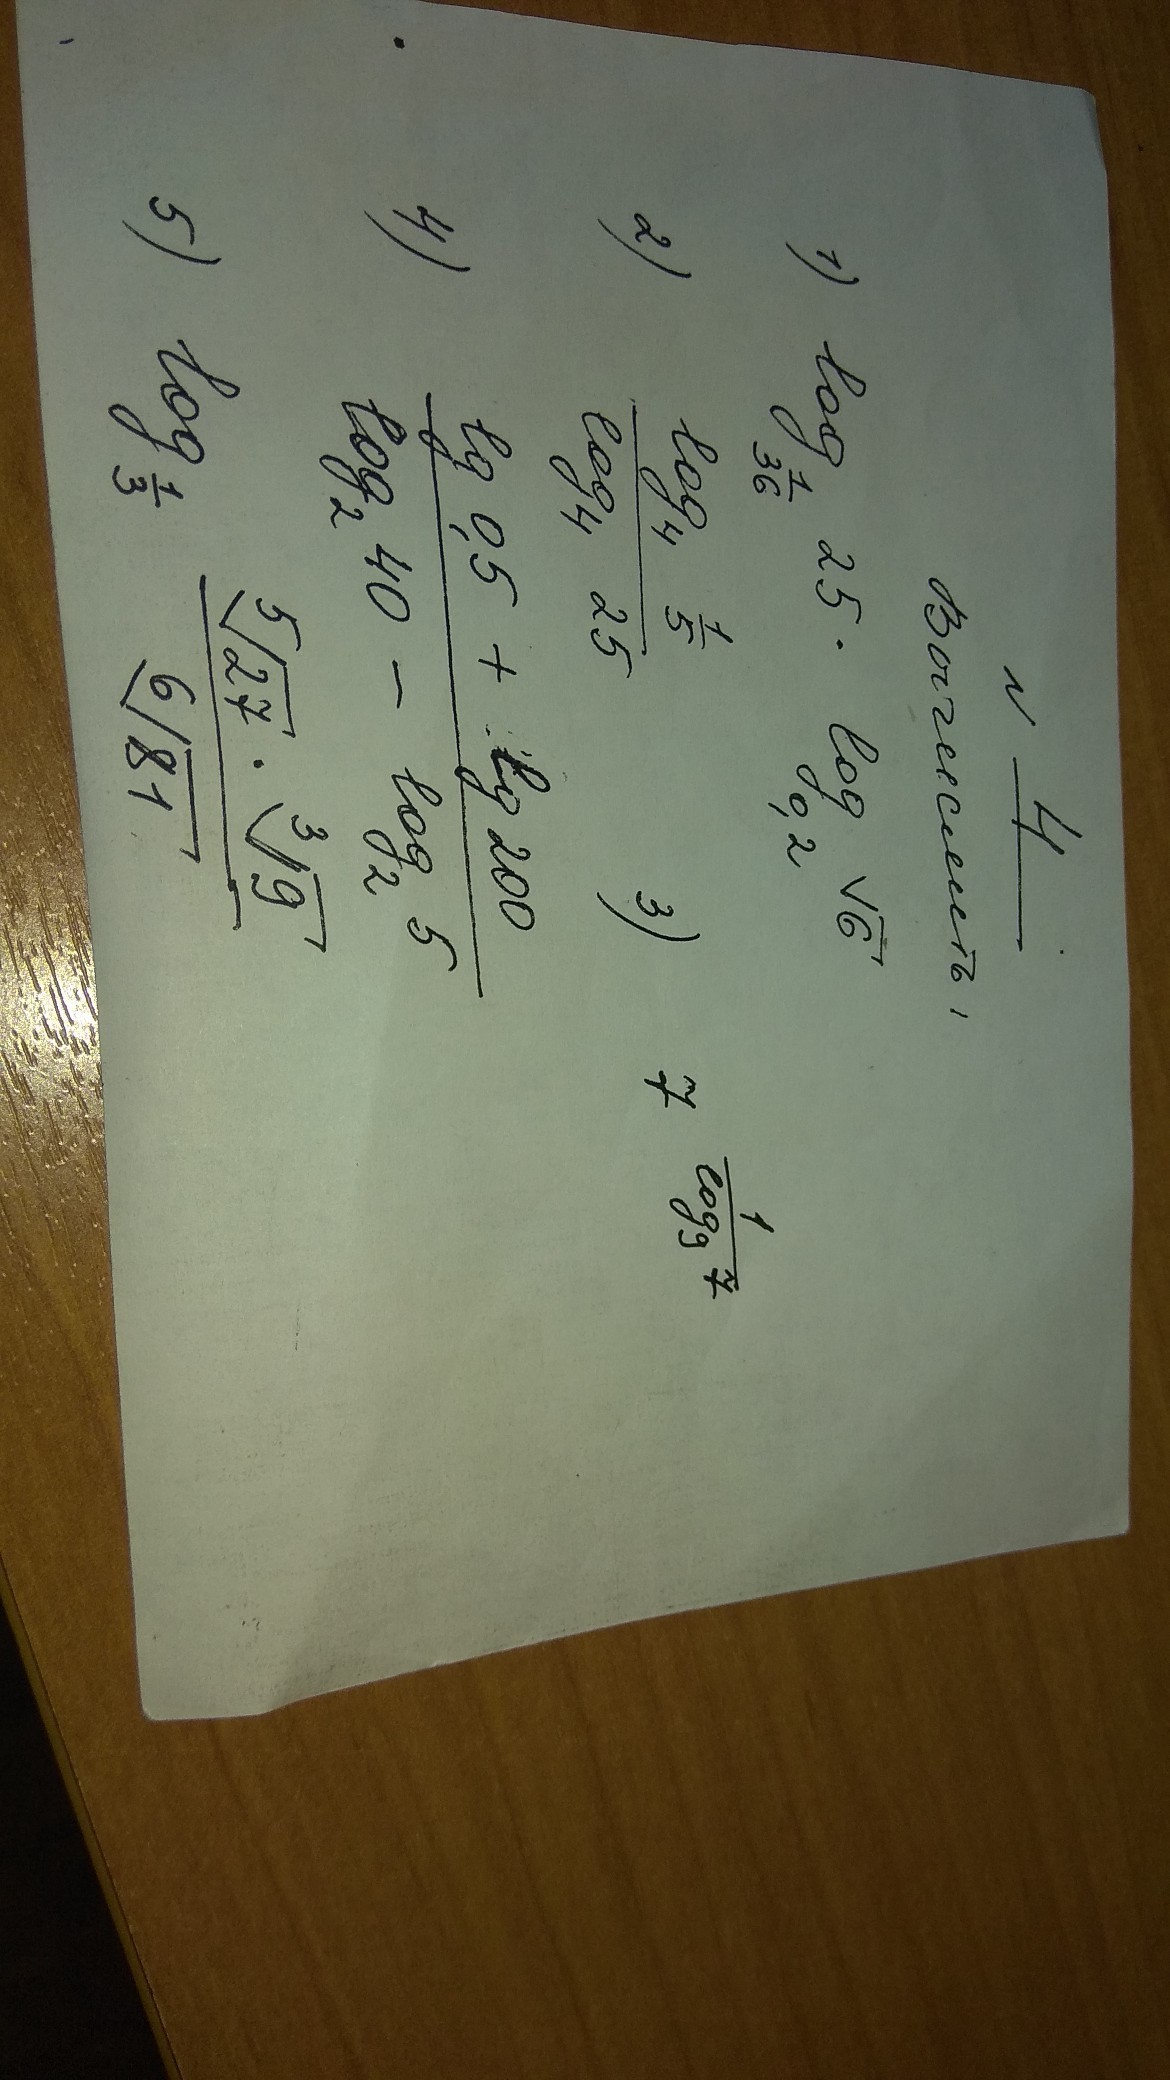 N 4
Вычислить:
1) log_{1/36} 25 · log_{0,2} √6
2) (log_4 1/5) / (log_4 25)  3) 7^{1/(log_9 7)}
4) (lg 0,5 + lg 200) / (log_2 40 − log_2 5)
5) log_{1/3} (⁵√27 · ³√9) / (⁶√81)